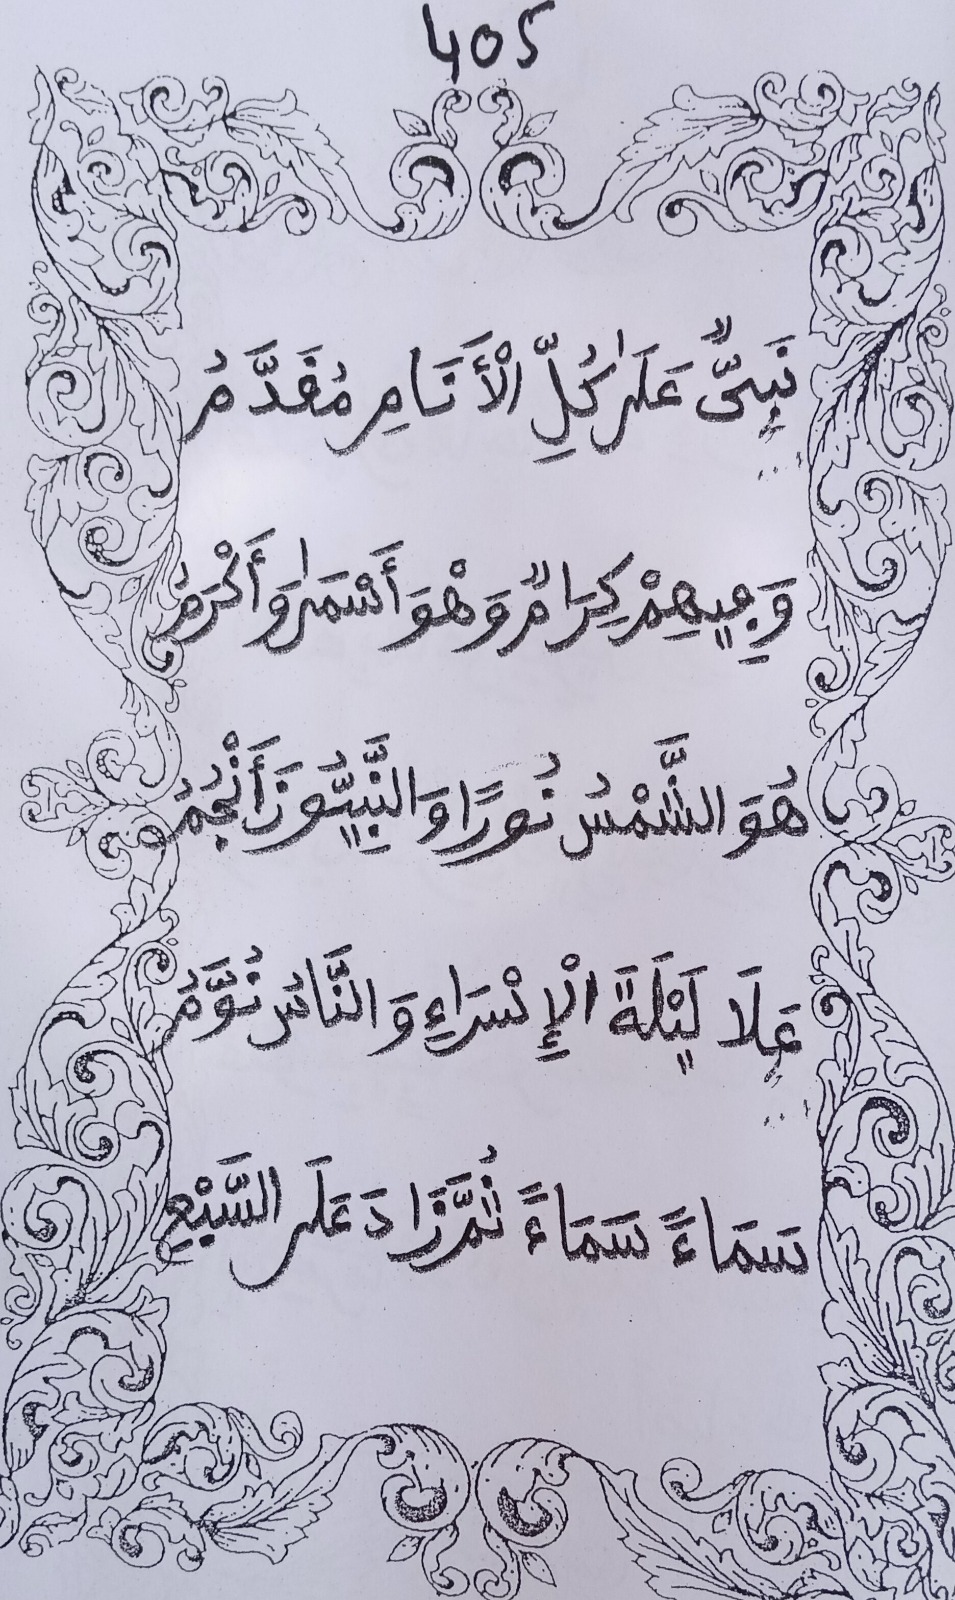 405
نَبِيٌّ عَلَىٰ كُلِّ الْأَنَامِ مُقَدَّمُ
وَفِيهِمْ كِرَامٌ وَهْوَ أَسْمَىٰ وَأَكْرَمُ
هُوَ الشَّمْسُ نُورًا وَالنَّبِيُّونَ أَنْجُمُ
عَلَا لَيْلَةَ الْإِسْرَاءِ وَالنَّاسُ نُوَّمُ
سَمَاءً سَمَاءً ثُمَّ زَادَ عَلَى السَّبْعِ